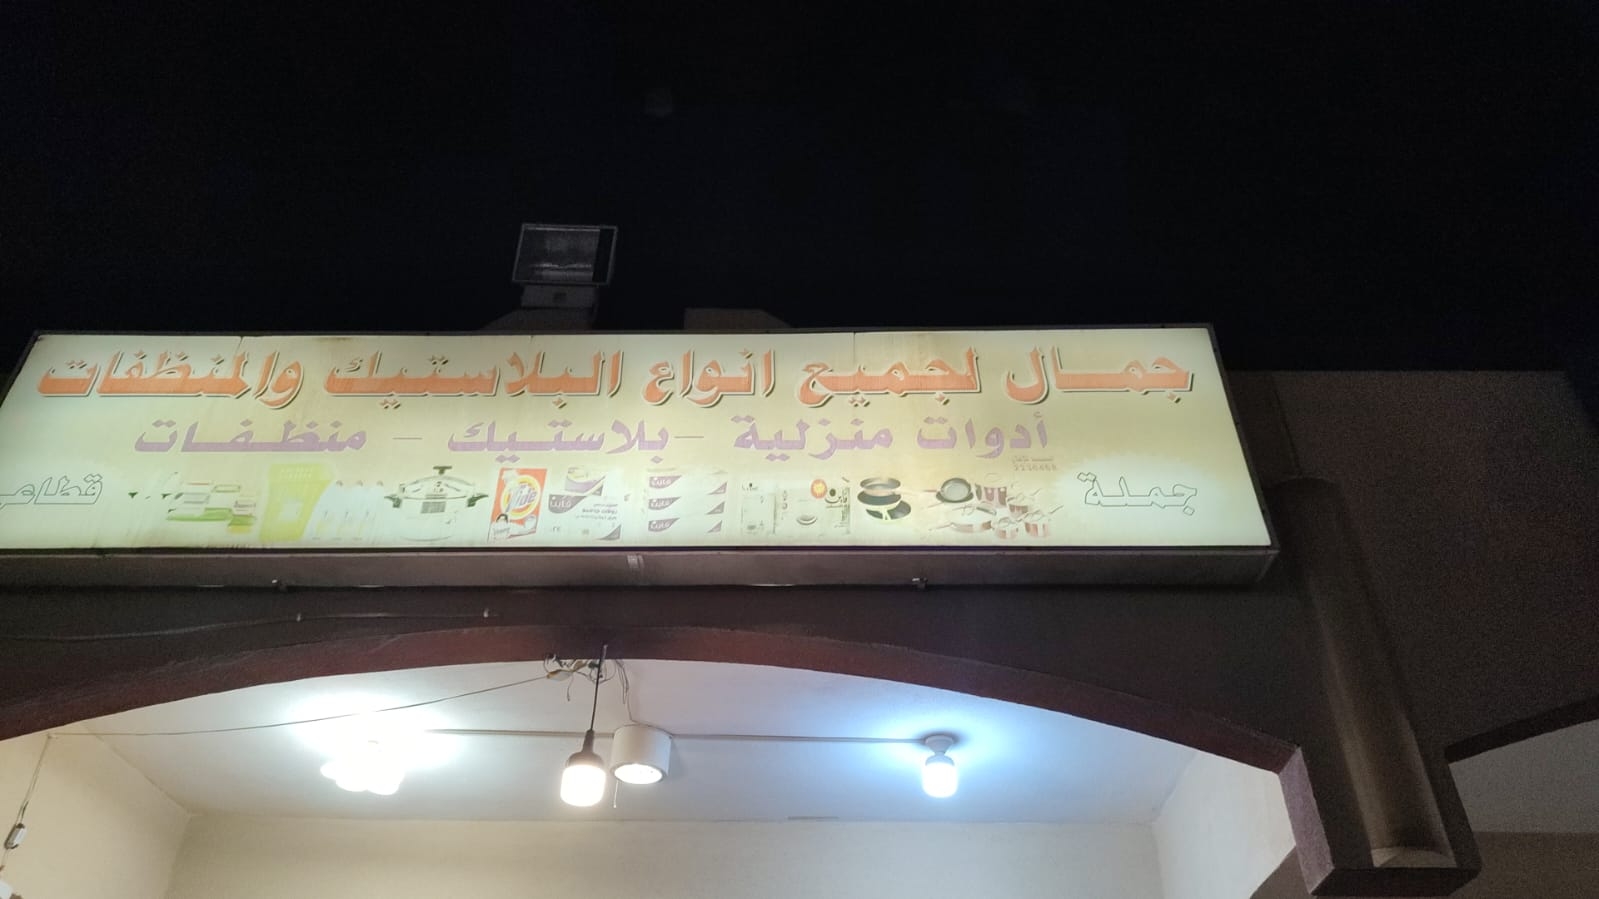 جمال لجميع انواع البلاستيك والمنظفات
أدوات منزلية - بلاستيك - منظفات
جملة
Tide
فاين
فاين
فاين
فاين